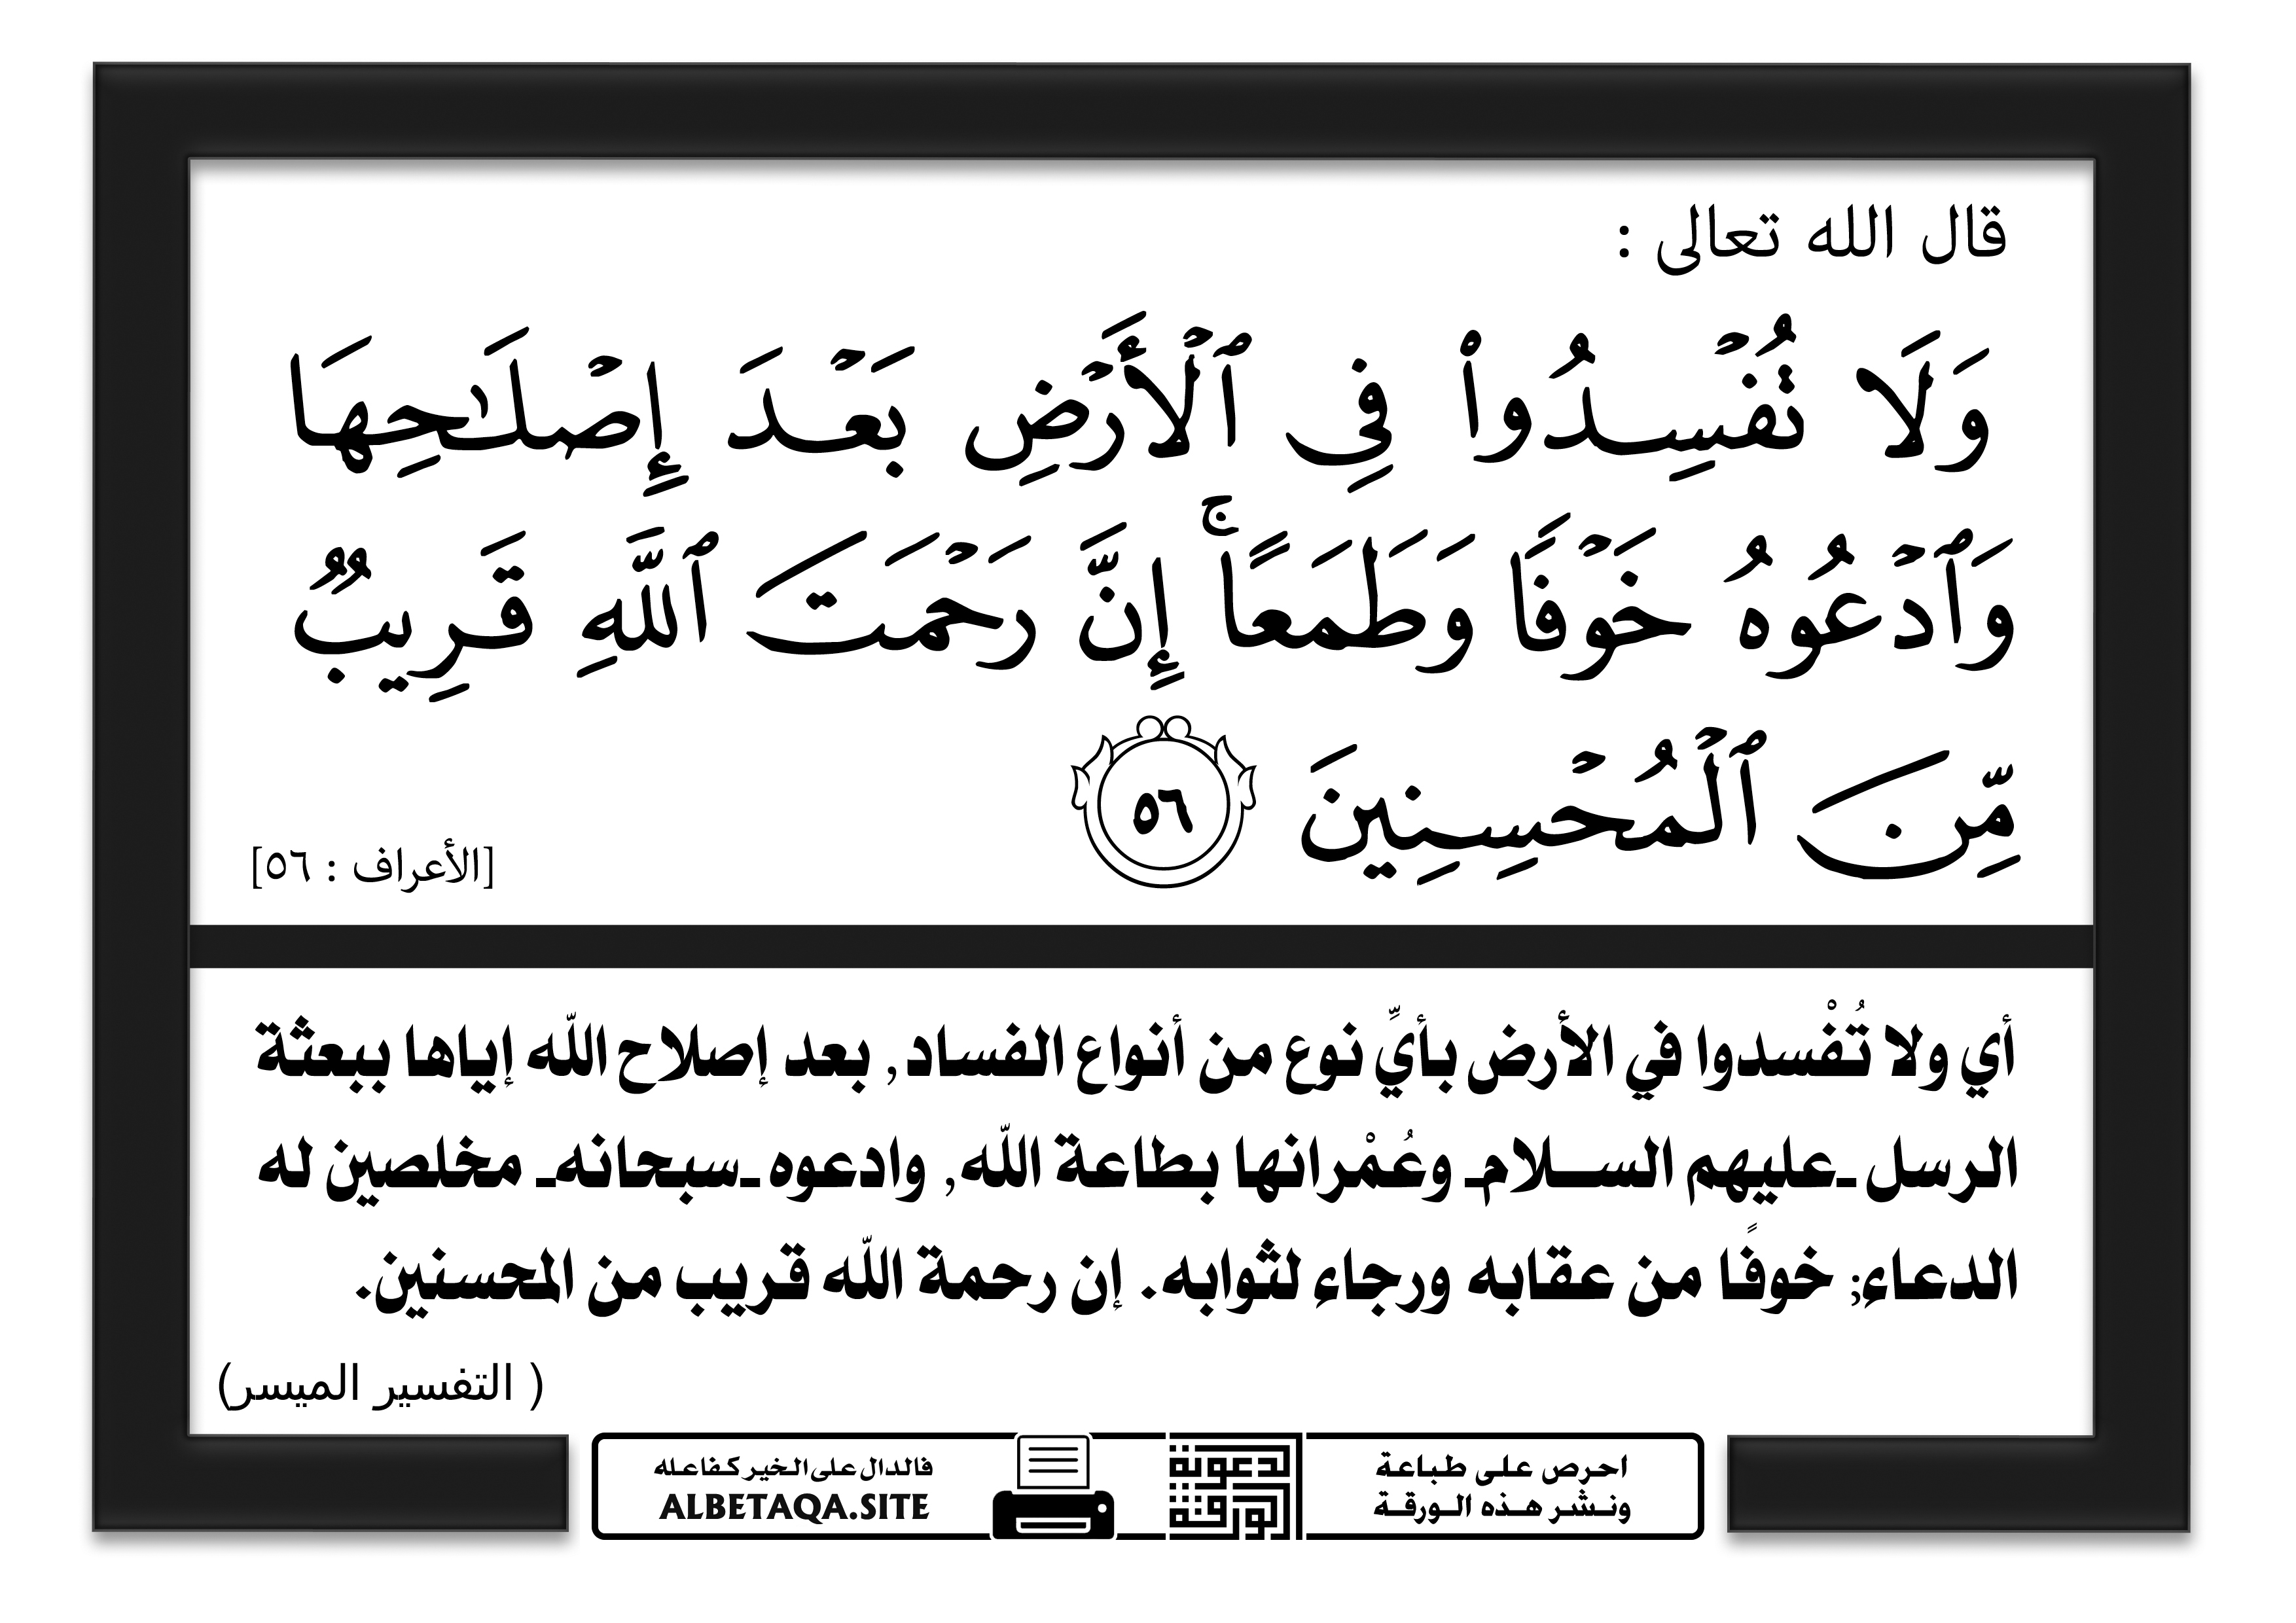 قال الله تعالى :
وَلَا تُفْسِدُوا۟ فِى ٱلْأَرْضِ بَعْدَ إِصْلَـٰحِهَا
وَٱدْعُوهُ خَوْفًا وَطَمَعًا ۚ إِنَّ رَحْمَتَ ٱللَّهِ قَرِيبٌ
مِّنَ ٱلْمُحْسِنِينَ ٥٦
[الأعراف : ٥٦]
أي ولا تُفْسدوا في الأرض بأيِّ نوع من أنواع الفساد, بعد إصلاح الله إياها ببعثة
الرسل ـعليهم الســلامـ وعُمْرانها بطاعة الله, وادعوه ـسبحانهـ مخلصين له
الدعاء; خوفًا من عقابه ورجاء لثوابه. إن رحمة الله قريب من المحسنين.
( التفسير الميسر)
احرص على طباعة
ونـشـر هـذه الـورقـة
الدعوية
الورقة
فالدال على الخير كفاعله
ALBETAQA.SITE